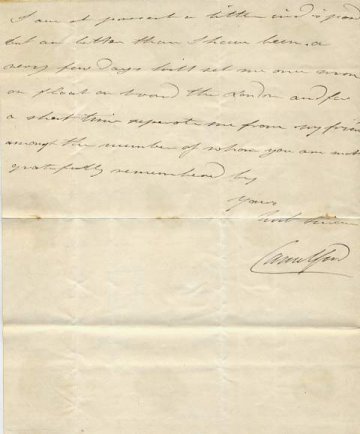 I am at present a little indispos
but am better than I have been, a
very few days will set me once more
on float on board the London and for
a short time separate me from my fri
among the number of whom you are most
gratefully remembered by
Yours
Camelford